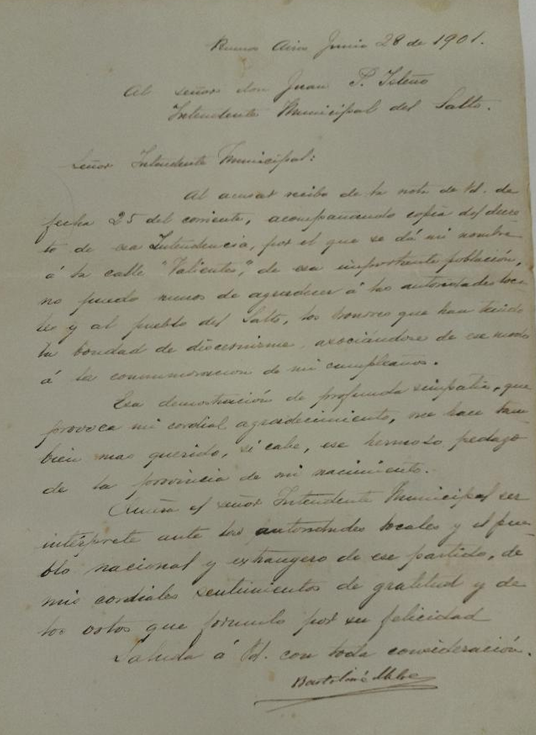 Buenos Aires Junio 28 de 1901.
Al señor don Juan P.
Intendente Municipal del Salto.
Señor Intendente Municipal:
Al acusar recibo de la nota de Vd. de
fecha 25 del corriente, acompañando copia del decre-
to de esa Intendencia, por el que se dá mi nombre
á la calle "Valiente", de esa importante población,
no puedo menos de agradecer á las autoridades loca-
les y al pueblo del Salto, los honores que han tenido
la bondad de discernirme, asociándose de ese modo
á la conmemoración de mi cumpleaños.
Esa demostración de profunda simpatía, que
provoca mi cordial agradecimiento, me hace tam-
bien mas querido, si cabe, ese hermoso pedazo
de la provincia de mi nacimiento.
el señor Intendente Municipal ser
intérprete ante las autoridades locales y el pue-
blo nacional y extrangero de ese partido, de
mis cordiales sentimientos de gratitud y de
los votos que formulo por su felicidad
Saluda á Vd. con toda consideración.
Bartolomé Mitre